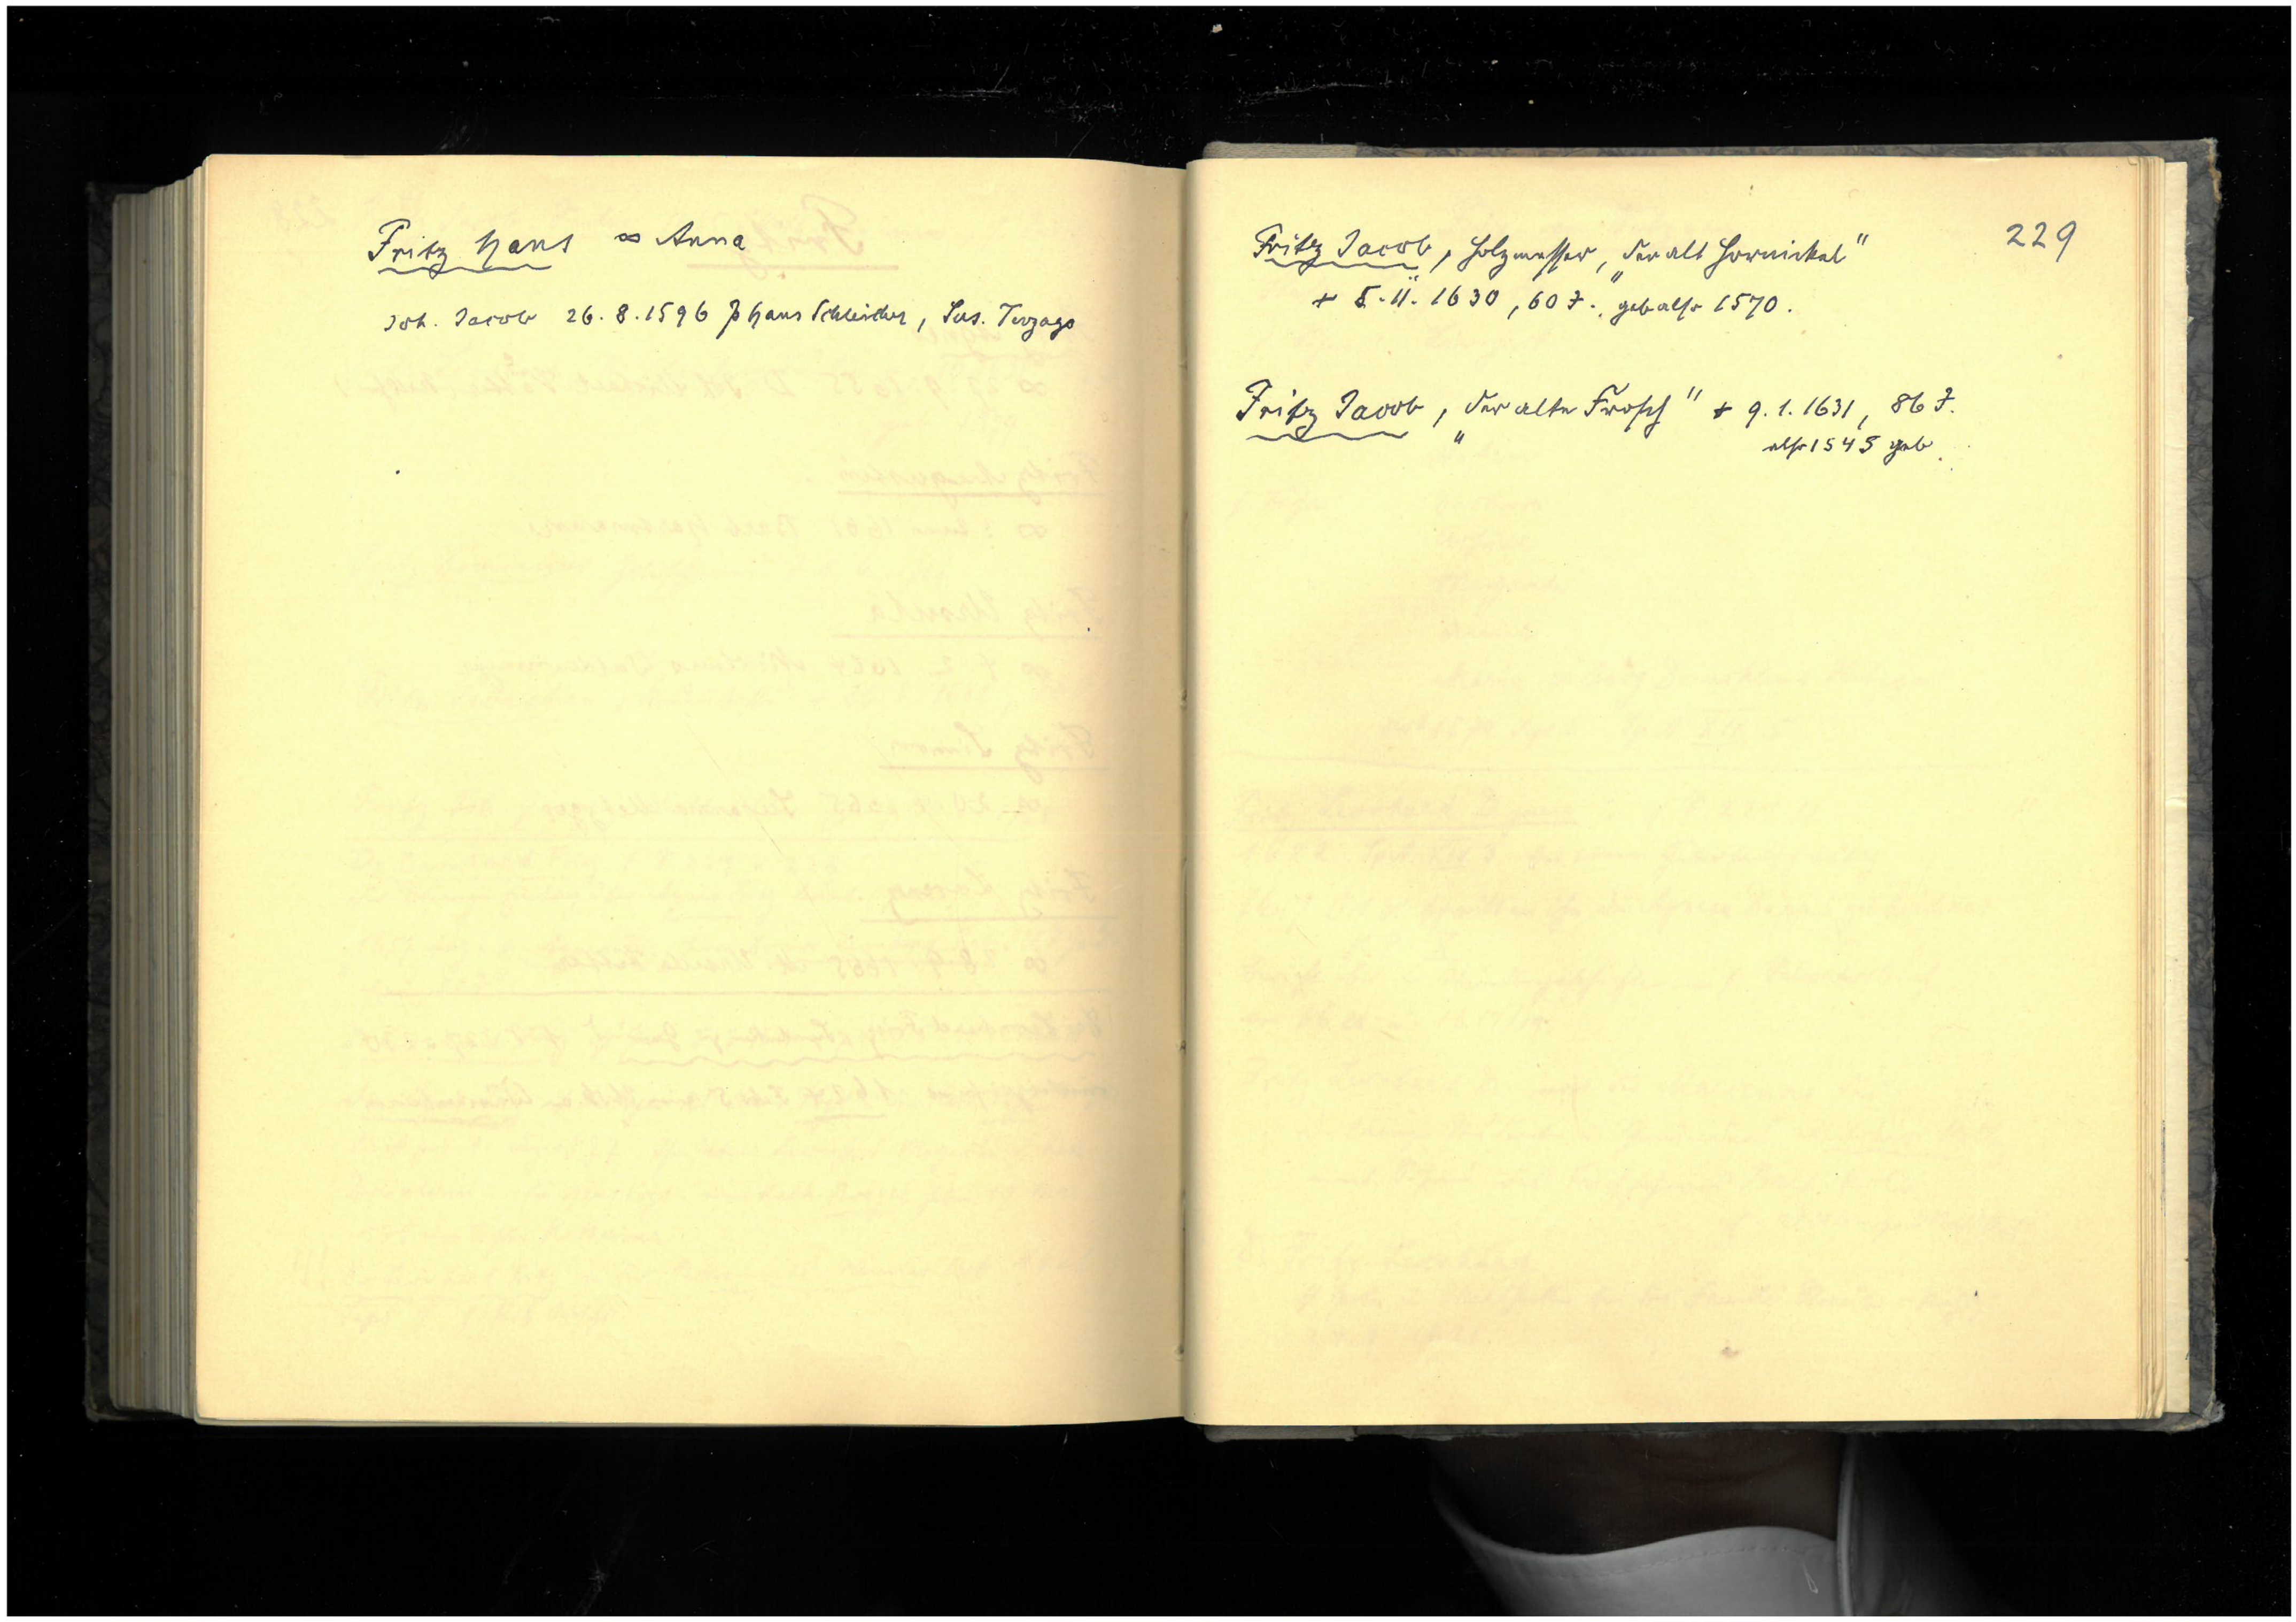 Fritz Hans ∞ Anna
Joh. Jacob 26.8.1596 P Hans Schleicher, Sus. Terzago
229
Fritz Jacob, Holzmesser, „der alt Hornickel"
+ 5.11.1630, 60 J., geb also 1570.
Fritz Jacob, „der alte Frosch" + 9.1.1631, 86 J.
also 1545 geb.